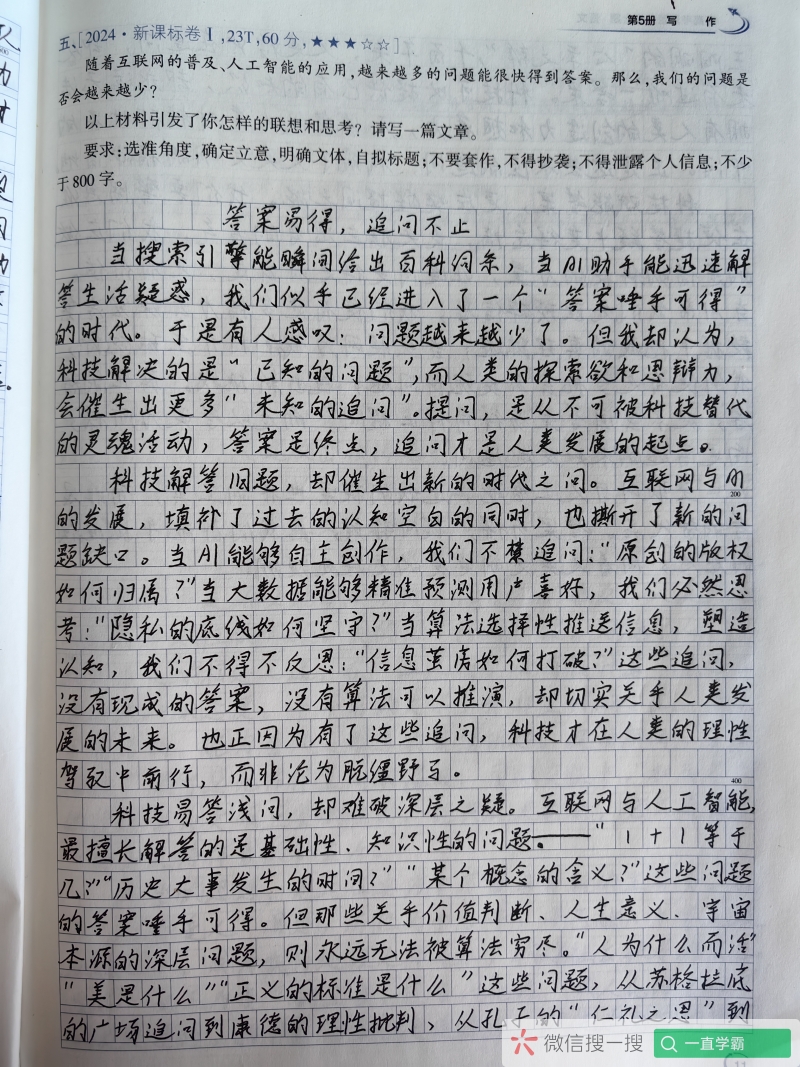 第5册 写 作
五、[2024·新课标卷Ⅰ,23T,60分,★★★☆☆]
随着互联网的普及、人工智能的应用,越来越多的问题能很快得到答案。那么,我们的问题是
否会越来越少?
以上材料引发了你怎样的联想和思考?请写一篇文章。
要求:选准角度,确定立意,明确文体,自拟标题;不要套作,不得抄袭;不得泄露个人信息;不少
于800字。
答案易得，追问不止
当搜索引擎能瞬间给出百科词条，当AI助手能迅速解
答生活疑惑，我们似乎已经进入了一个“答案唾手可得”
的时代。于是有人感叹：问题越来越少了。但我却认为，
科技解决的是“已知的问题”，而人类的探索欲和思辩力，
会催生出更多“未知的追问”。提问，是从不可被科技替代
的灵魂活动，答案是终点，追问才是人类发展的起点。
科技解答旧题，却催生出新的时代之问。互联网与AI
200
的发展，填补了过去的认知空白的同时，也撕开了新的问
题缺口。当AI能够自主创作，我们不禁追问：“原创的版权
如何归属？”当大数据能够精准预测用户喜好，我们必然思
考：“隐私的底线如何坚守？”当算法选择性推送信息，塑造
认知，我们不得不反思：“信息茧房如何打破？”这些追问，
没有现成的答案，没有算法可以推演，却切实关乎人类发
展的未来。也正因为有了这些追问，科技才在人类的理性
驾驭中前行，而非沦为脱缰野马。
400
科技易答浅问，却难破深层之疑。互联网与人工智能，
最擅长解答的是基础性、知识性的问题。——“1+1等于
几？”“历史大事发生的时间？”“某个概念的含义？”这些问题
的答案唾手可得。但那些关乎价值判断、人生意义、宇宙
本源的深层问题，则永远无法被算法穷尽。“人为什么而活”
“美是什么”“正义的标准是什么”这些问题，从苏格拉底
的广场追问到康德的理性批判，从孔子的“仁礼之思”到
微信搜一搜
一直学霸
11